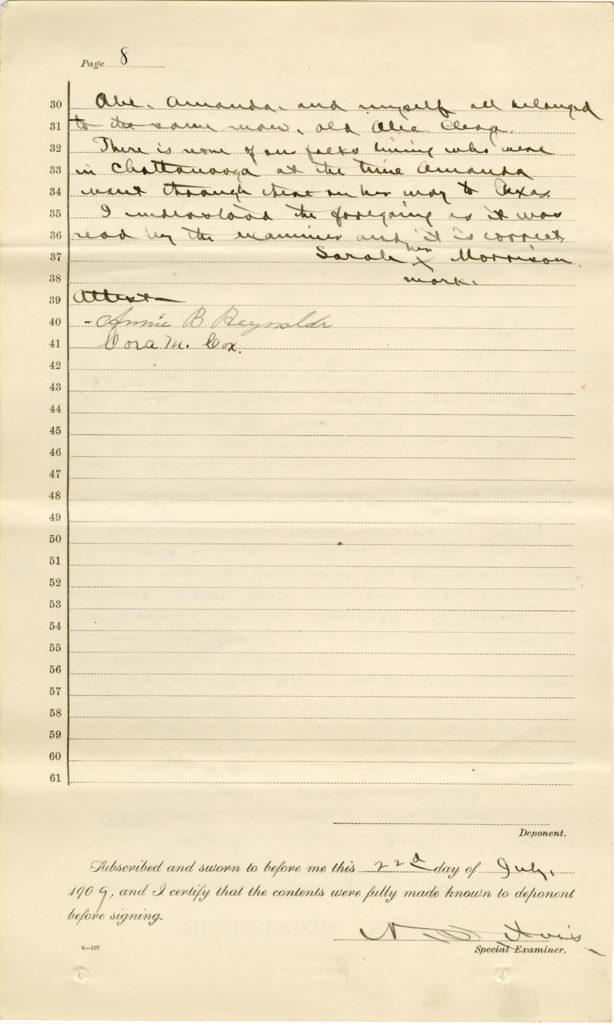 Page 8
30 Abe, Amanda, and myself all belonged
31 to the same man, old Abe Cleag.
32 There is none of our folks living who were
33 in Chattanooga at the time Amanda
34 went through there on her way to Texas
35 I understood the foregoing as it was
36 read by the examiner and it is correct
37 Sarah her x Morrison.
38 mark.
39 Attest
40 - Annie B Reynolds
41 Cora M. Cox.
42
43
44
45
46
47
48
49
50
51
52
53
54
55
56
57
58
59
60
61
Deponent.
Subscribed and sworn to before me this 22d day of July,
1909, and I certify that the contents were fully made known to deponent
before signing.
N.
6—197
Special Examiner.